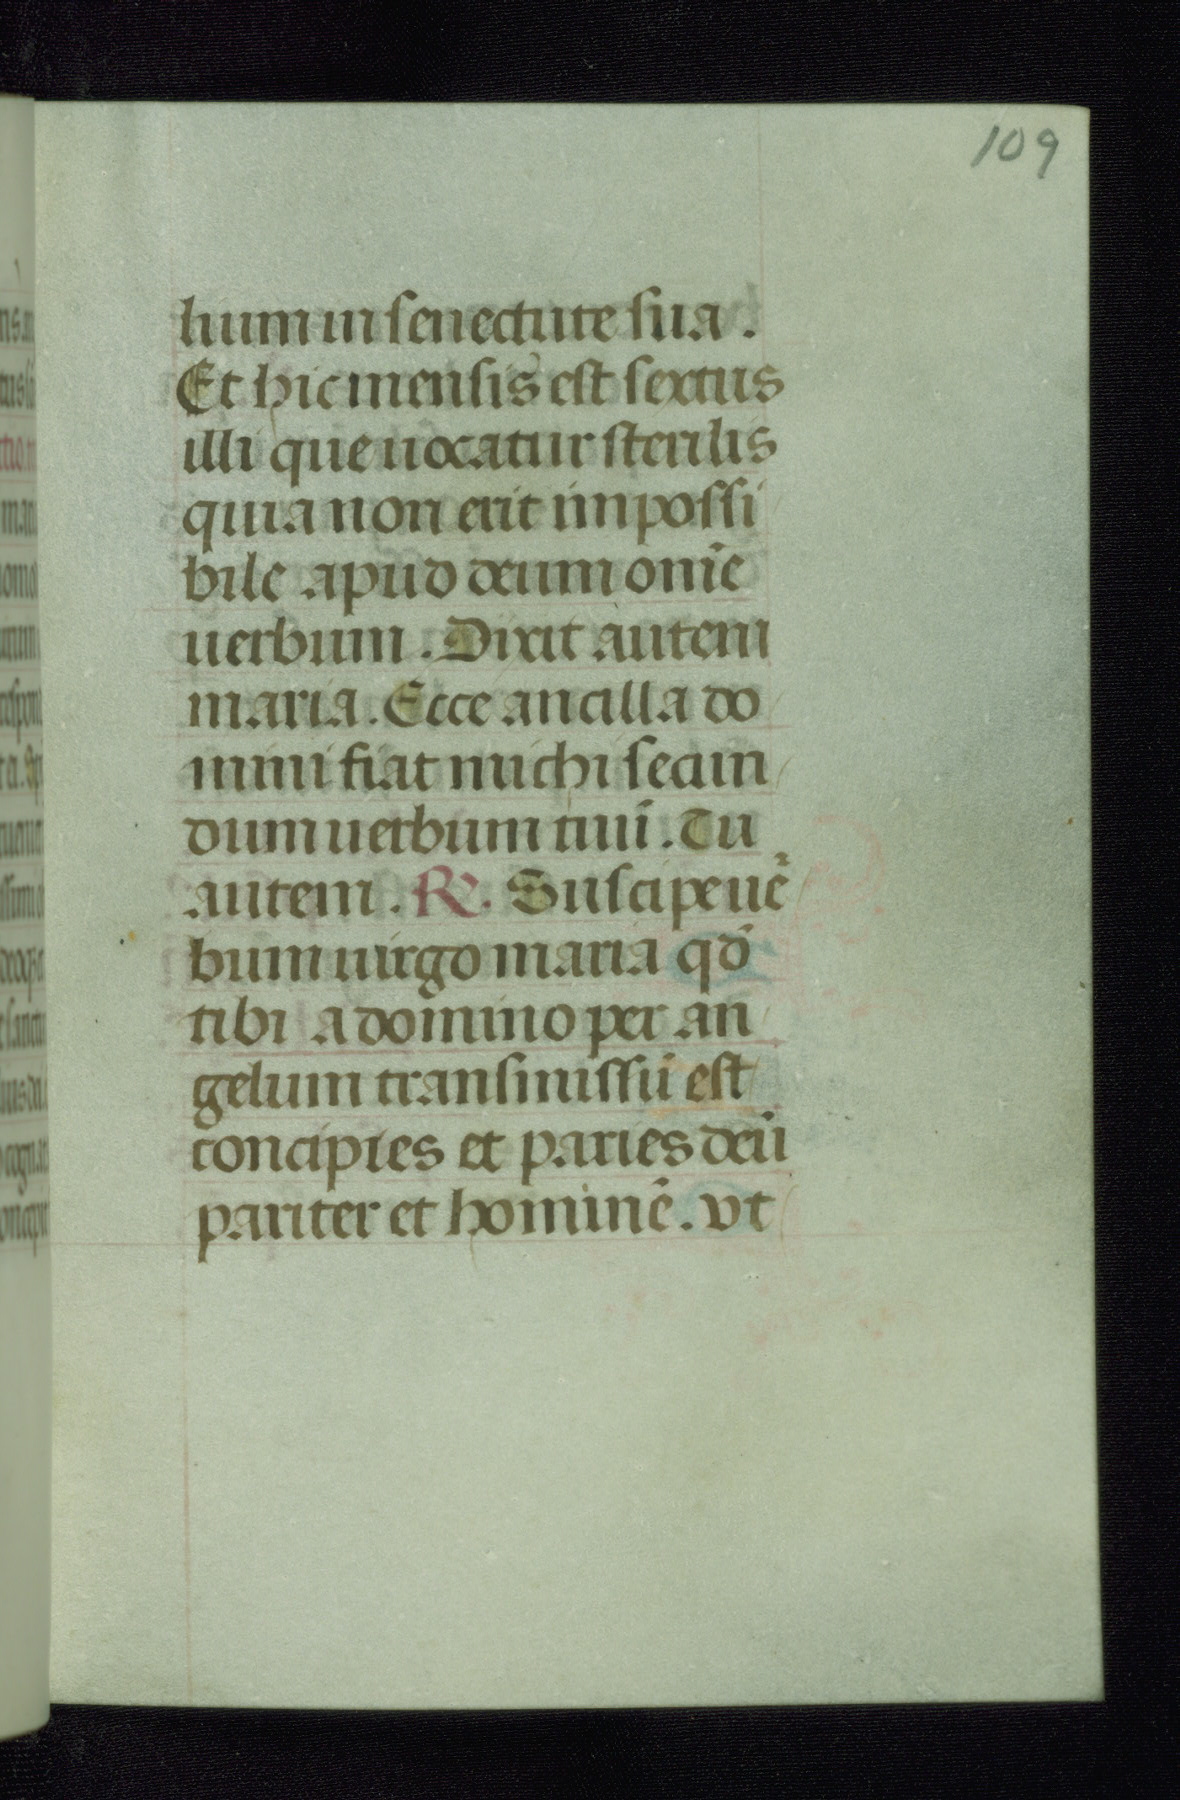 109
lium in senectute sua.
Et hic mensis est sextus
illi que uocatur sterilis
quia non erit impossi
bile apud deum omē
uerbum. Dixit autem
maria. Ecce ancilla do
mini fiat michi secun
dum uerbum tuū. Tu
autem. R. Suscipe uē
bum uirgo maria qđ
tibi a domino per an
gelum transmissū est
concipies et paries deū
pariter et hominē. vt